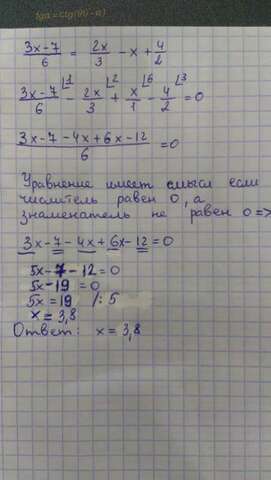 tgα = ctg(90 - α)
(3x-7)/6 = 2x/3 - x + 4/2
(3x-7)/6 ⌊1 - 2x/3 ⌊2 + x/1 ⌊6 - 4/2 ⌊3 = 0
(3x-7-4x+6x-12)/6 = 0
Уравнение имеет смысл если
числитель равен 0, а
знаменатель не равен 0 =>
3x-7-4x+6x-12=0
5x-7-12=0
5x-19=0
5x=19 /:5
x=3,8
Ответ: x=3,8